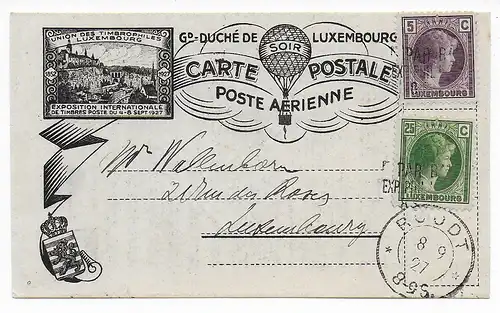 UNION DES TIMBROPHILES
LUXEMBOURG
1852 1927
EXPOSITION INTERNATIONALE
DE TIMBRES POSTE DU 4-8 SEPT. 1927
Gᴰ-DUCHÉ DE LUXEMBOURG
SOIR
CARTE POSTALE
POSTE AÉRIENNE
5 C
LUXEMBOURG
PAR B
25 C
LUXEMBOURG
PAR B
Mr Wallenborn
21 rue des Roses
Luxembourg
ROODT
8 9
27
8-9S.